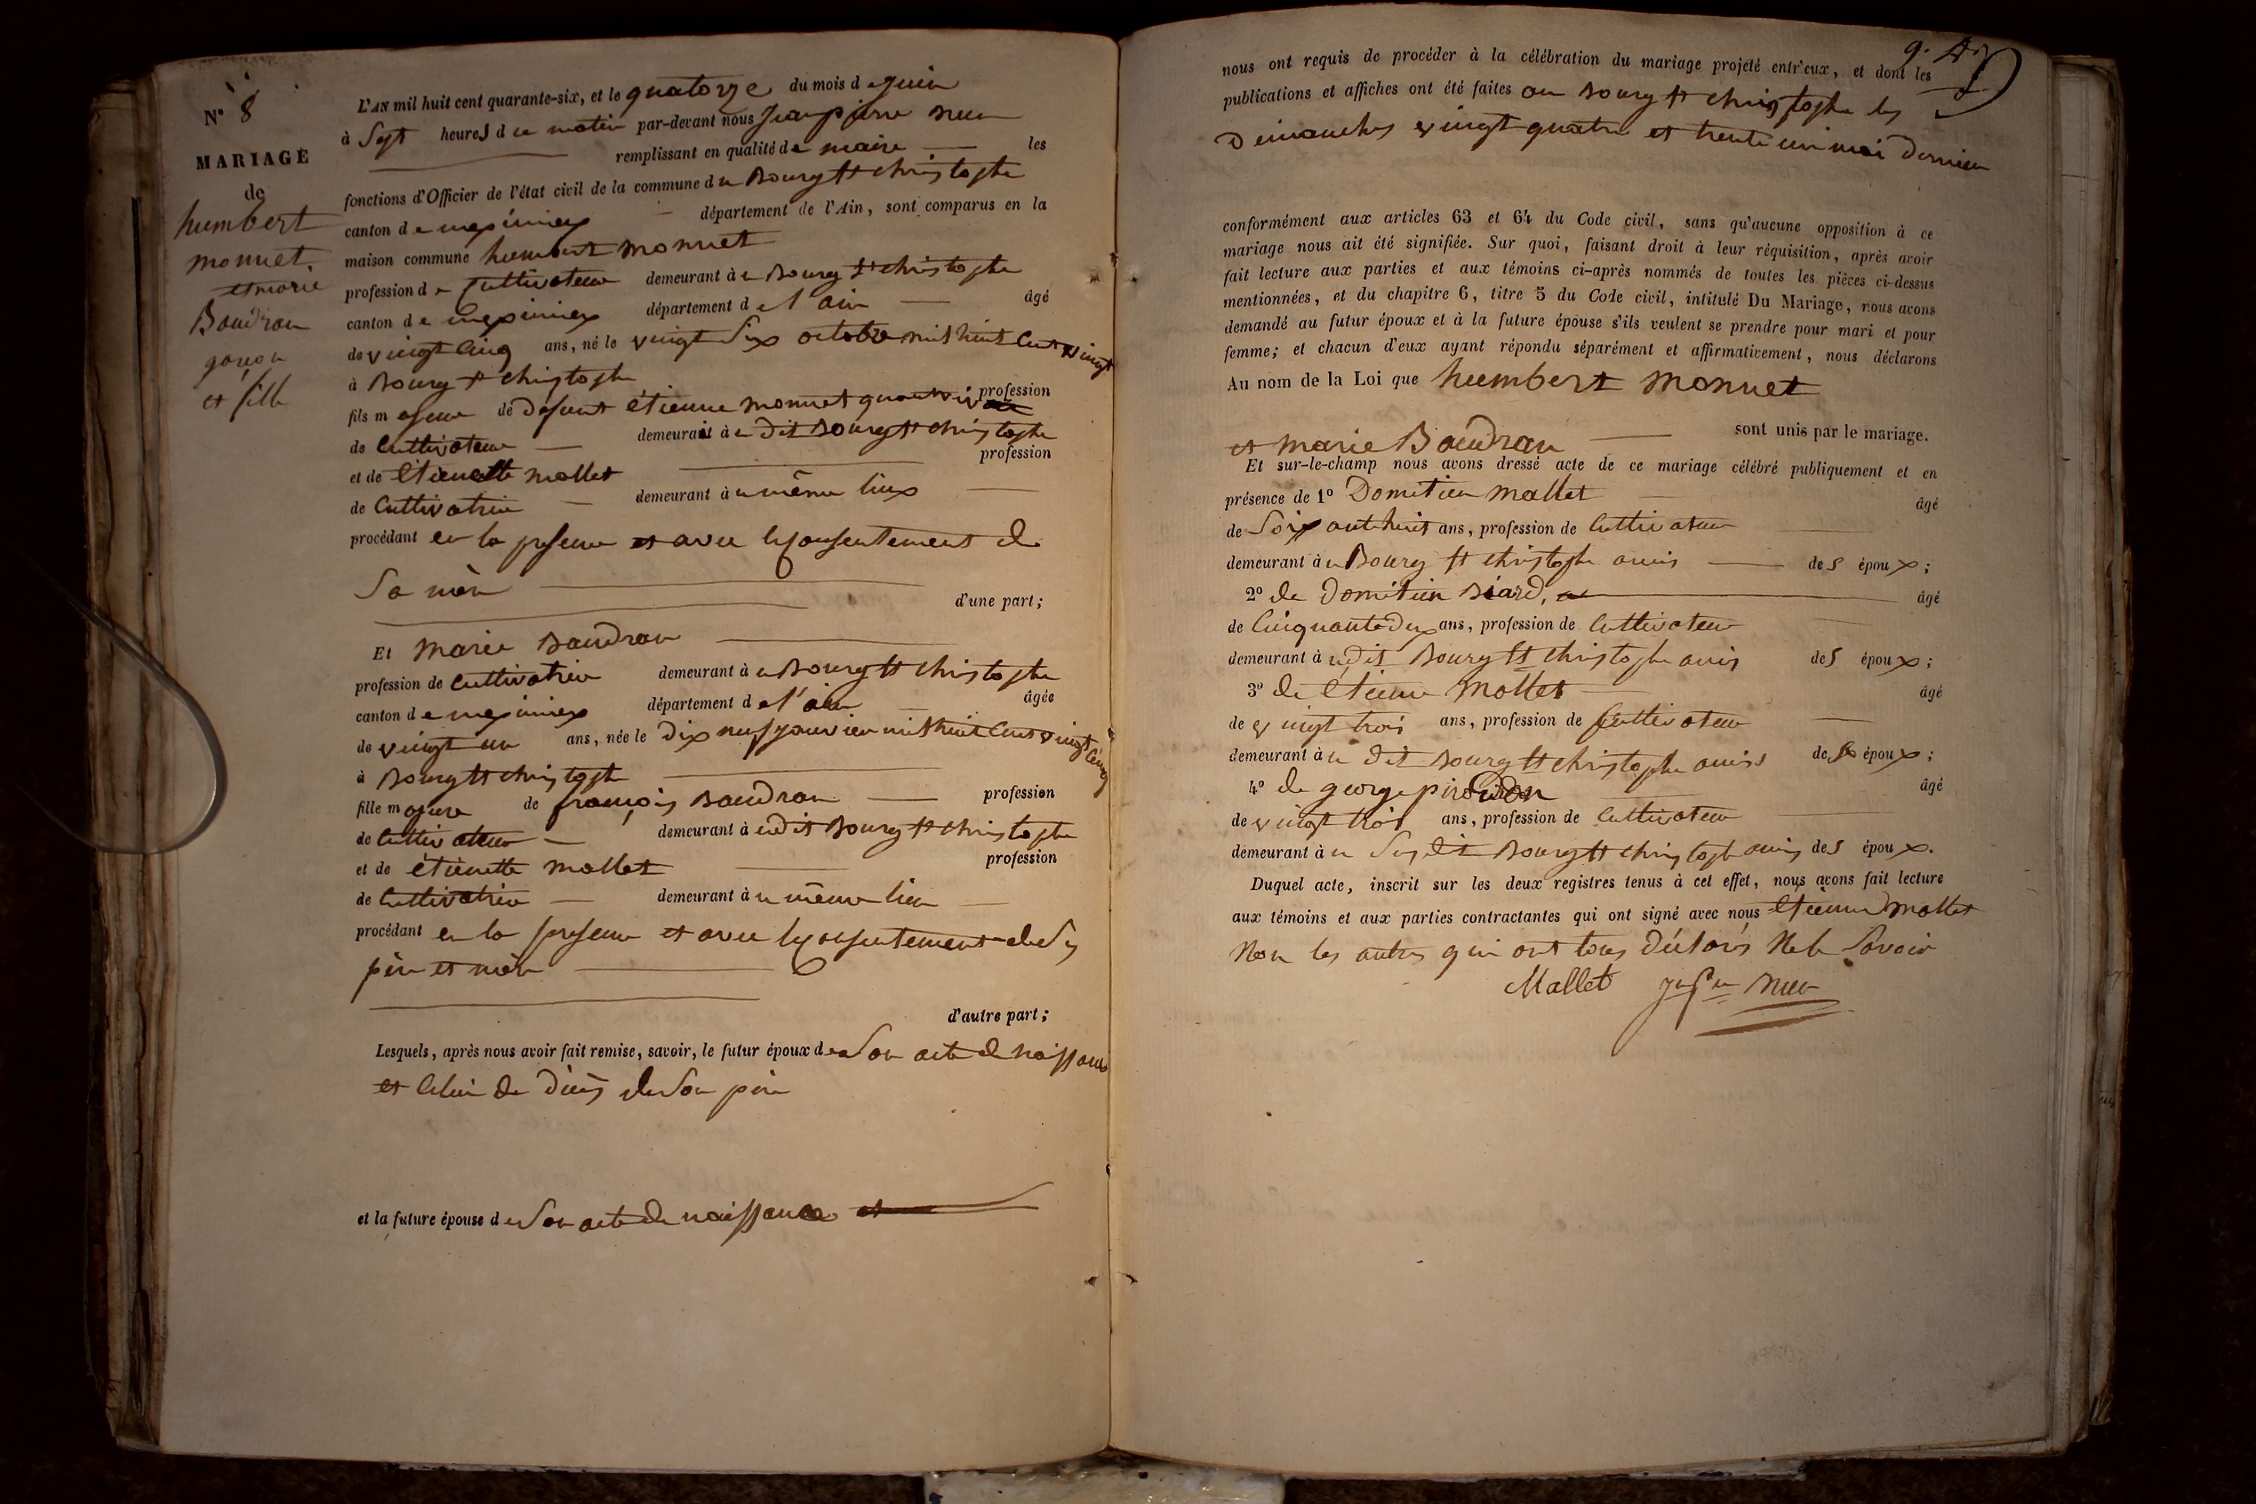 N° 8
MARIAGE
de
humbert
monnet
et marie
Baudran
garçon
et fille
L'AN mil huit cent quarante-six, et le quatorze du mois de juin
à Sept heures du matin par-devant nous jean pierre
remplissant en qualité de maire les
fonctions d'Officier de l'état civil de la commune du Bourg St christophe
canton de meximieux département de l'Ain, sont comparus en la
maison commune humbert monnet
profession de Cultivateur demeurant à u Bourg St christophe
canton de meximieux département de l'ain âgé
de vingt Cinq ans, né le vingt Six octobre mil huit Cent vingt
à Bourg St christophe
fils majeur de défunt étienne monnet profession
de Cultivateur demeurait à u dit Bourg St christophe
et de étienette mollet profession
de Cultivatrice demeurant à u même lieux
procédant en la presence et avec le consentement de
Sa mère
d'une part;
Et Marie Baudran
profession de Cultivatrice demeurant à u Bourg St christophe
canton de meximieux département de l'ain âgée
de vingt un ans, née le Dix neuf janvier mil huit Cent vingt Cinq
à Bourg St christophe
fille majeure de françois Baudran profession
de Cultivateur demeurant à udit Bourg St christophe
et de étienette mollet profession
de Cultivatrice demeurant à u même lieu
procédant en la presence et avec le consentement de Ses
père et mère
d'autre part;
Lesquels, après nous avoir fait remise, savoir, le futur époux de Son acte de naissance
et Celui de décès de Son père
et la future épouse de Son acte de naissance et
nous ont requis de procéder à la célébration du mariage projeté entr'eux, et dont les
publications et affiches ont été faites au Bourg St christophe les
Dimanches vingt quatre et trente un mai Dernier
conformément aux articles 63 et 64 du Code civil, sans qu'aucune opposition à ce
mariage nous ait été signifiée. Sur quoi, faisant droit à leur réquisition, après avoir
fait lecture aux parties et aux témoins ci-après nommés de toutes les pièces ci-dessus
mentionnées, et du chapitre 6, titre 5 du Code civil, intitulé Du Mariage, nous avons
demandé au futur époux et à la future épouse s'ils veulent se prendre pour mari et pour
femme; et chacun d'eux ayant répondu séparément et affirmativement, nous déclarons
Au nom de la Loi que humbert Monnet
et Marie Baudran sont unis par le mariage.
Et sur-le-champ nous avons dressé acte de ce mariage célébré publiquement et en
présence de 1° Domitien Mallet âgé
de Soixante huit ans, profession de Cultivateur
demeurant à u Bourg St christophe amis des époux;
2° de Domitien Biard, âgé
de Cinquante Deux ans, profession de Cultivateur
demeurant à udit Bourg St christophe amis des époux;
3° de étienne Mollet âgé
de vingt trois ans, profession de Cultivateur
demeurant à u dit Bourg St christophe amis des époux;
4° de george âgé
de vingt trois ans, profession de Cultivateur
demeurant à u Susdit Bourg St christophe amis des époux.
Duquel acte, inscrit sur les deux registres tenus à cet effet, nous avons fait lecture
aux témoins et aux parties contractantes qui ont signé avec nous étienne Mollet
Non les autres qui ont tous déclarés Ne le Savoir
Mallet